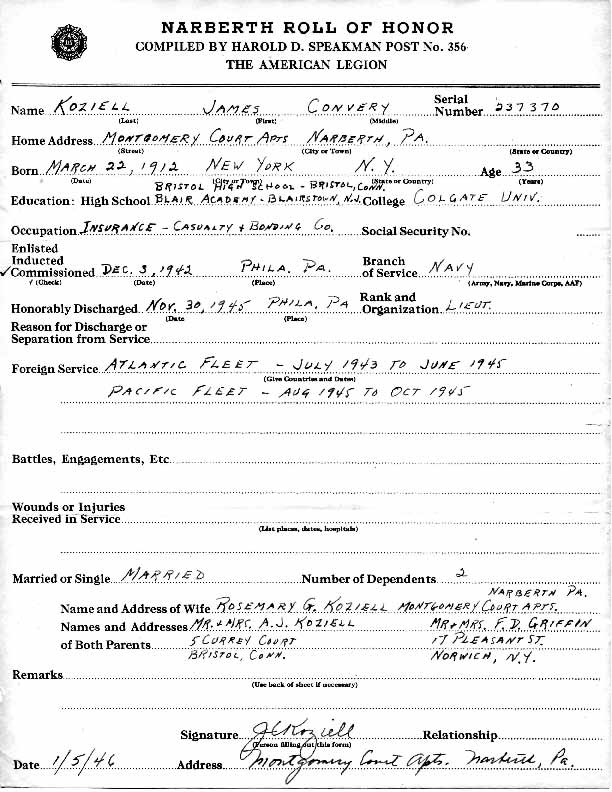 NARBERTH ROLL OF HONOR
COMPILED BY HAROLD D. SPEAKMAN POST No. 356
THE AMERICAN LEGION
Name KOZIELL JAMES CONVERY Serial Number 237370
(Last) (First) (Middle)
Home Address MONTGOMERY COURT APTS NARBERTH, PA.
(Street) (City or Town) (State or Country)
Born MARCH 22, 1912 NEW YORK N.Y. Age 33
(Date) (City or Town) (State or Country) (Years)
BRISTOL HIGH SCHOOL - BRISTOL, CONN.
Education: High School BLAIR ACADEMY - BLAIRSTOWN, N.J. College COLGATE UNIV.
Occupation INSURANCE - CASUALTY & BONDING CO. Social Security No.
Enlisted
Inducted Branch
✓Commissioned DEC. 3, 1942 PHILA. PA. of Service NAVY
√ (Check) (Date) (Place) (Army, Navy, Marine Corps, AAF)
Honorably Discharged NOV. 30, 1945 PHILA. PA Rank and Organization LIEUT.
(Date (Place)
Reason for Discharge or
Separation from Service
Foreign Service ATLANTIC FLEET - JULY 1943 TO JUNE 1945
(Give Countries and Dates)
PACIFIC FLEET - AUG 1945 TO OCT 1945
Battles, Engagements, Etc
Wounds or Injuries
Received in Service
(List places, dates, hospitals)
Married or Single MARRIED Number of Dependents 2
NARBERTH PA.
Name and Address of Wife ROSEMARY G. KOZIELL MONTGOMERY COURT APTS.
Names and Addresses MR. & MRS. A.J. KOZIELL MR & MRS. F.D. GRIFFIN
of Both Parents 5 CURREY COURT 17 PLEASANT ST.
BRISTOL, CONN. NORWICH, N.Y.
Remarks
(Use back of sheet if necessary)
Signature JCKoziell Relationship
(Person filling out this form)
Date 1/5/46 Address Montgomery Court Apts. Narberth, Pa.